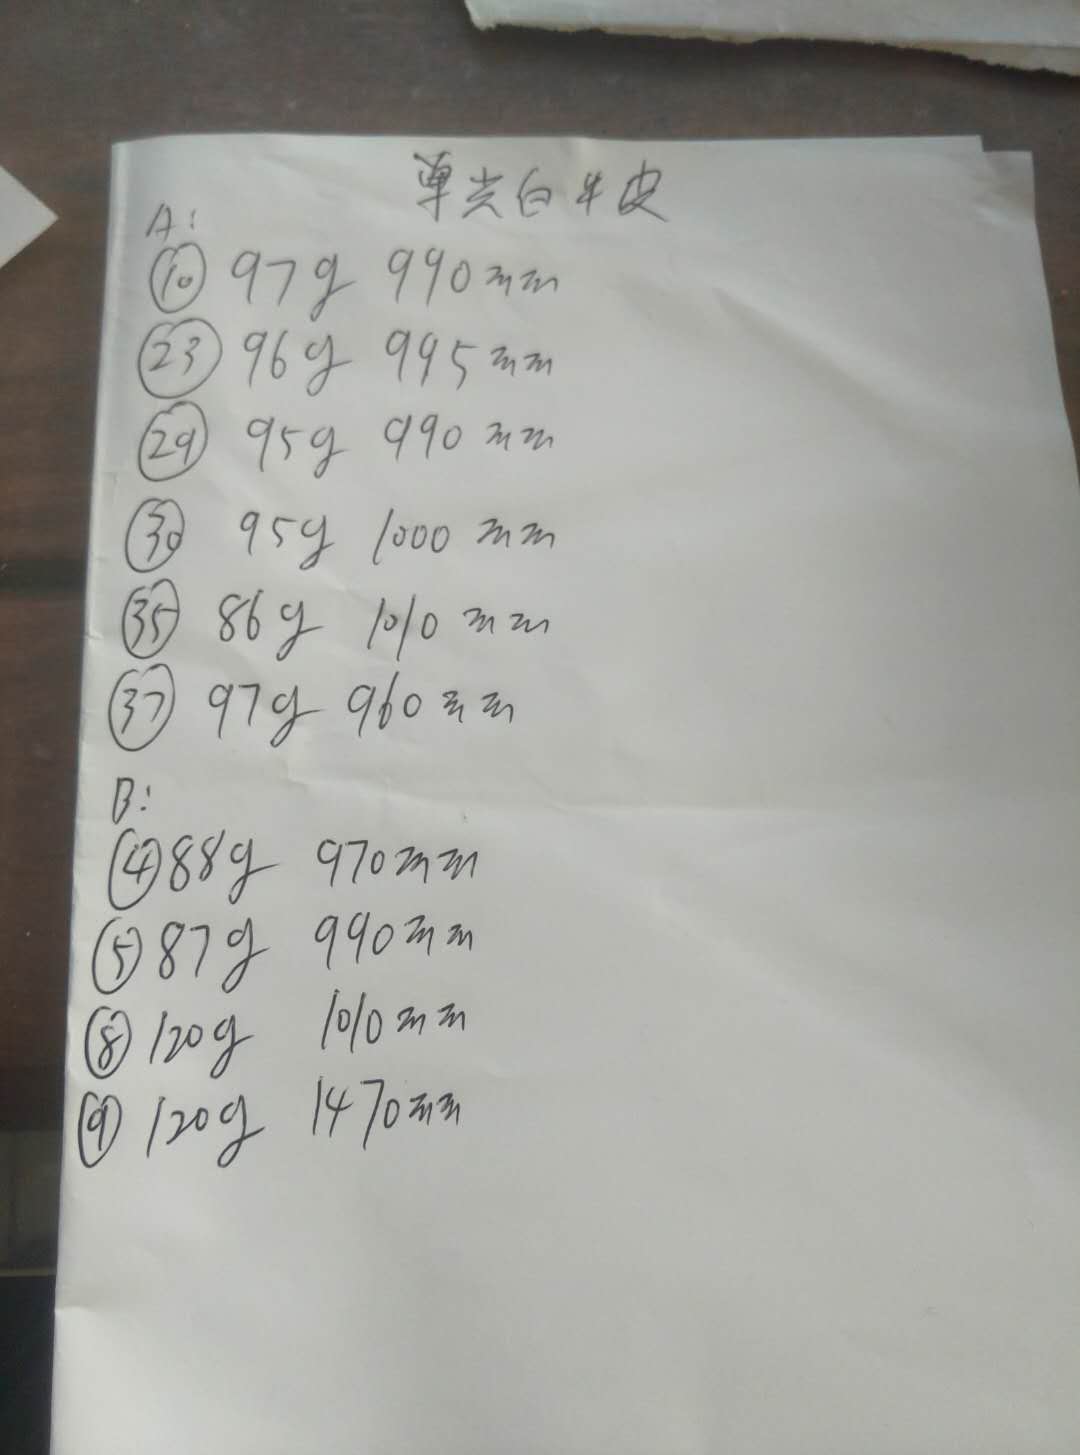 单光白牛皮
A:
⑩ 97g 990mm
㉓ 96g 995mm
㉙ 95g 990mm
㉚ 95g 1000mm
㉟ 86g 1010mm
㊲ 97g 960mm
B:
④ 88g 970mm
⑤ 87g 990mm
⑧ 120g 1010mm
⑨ 120g 1470mm